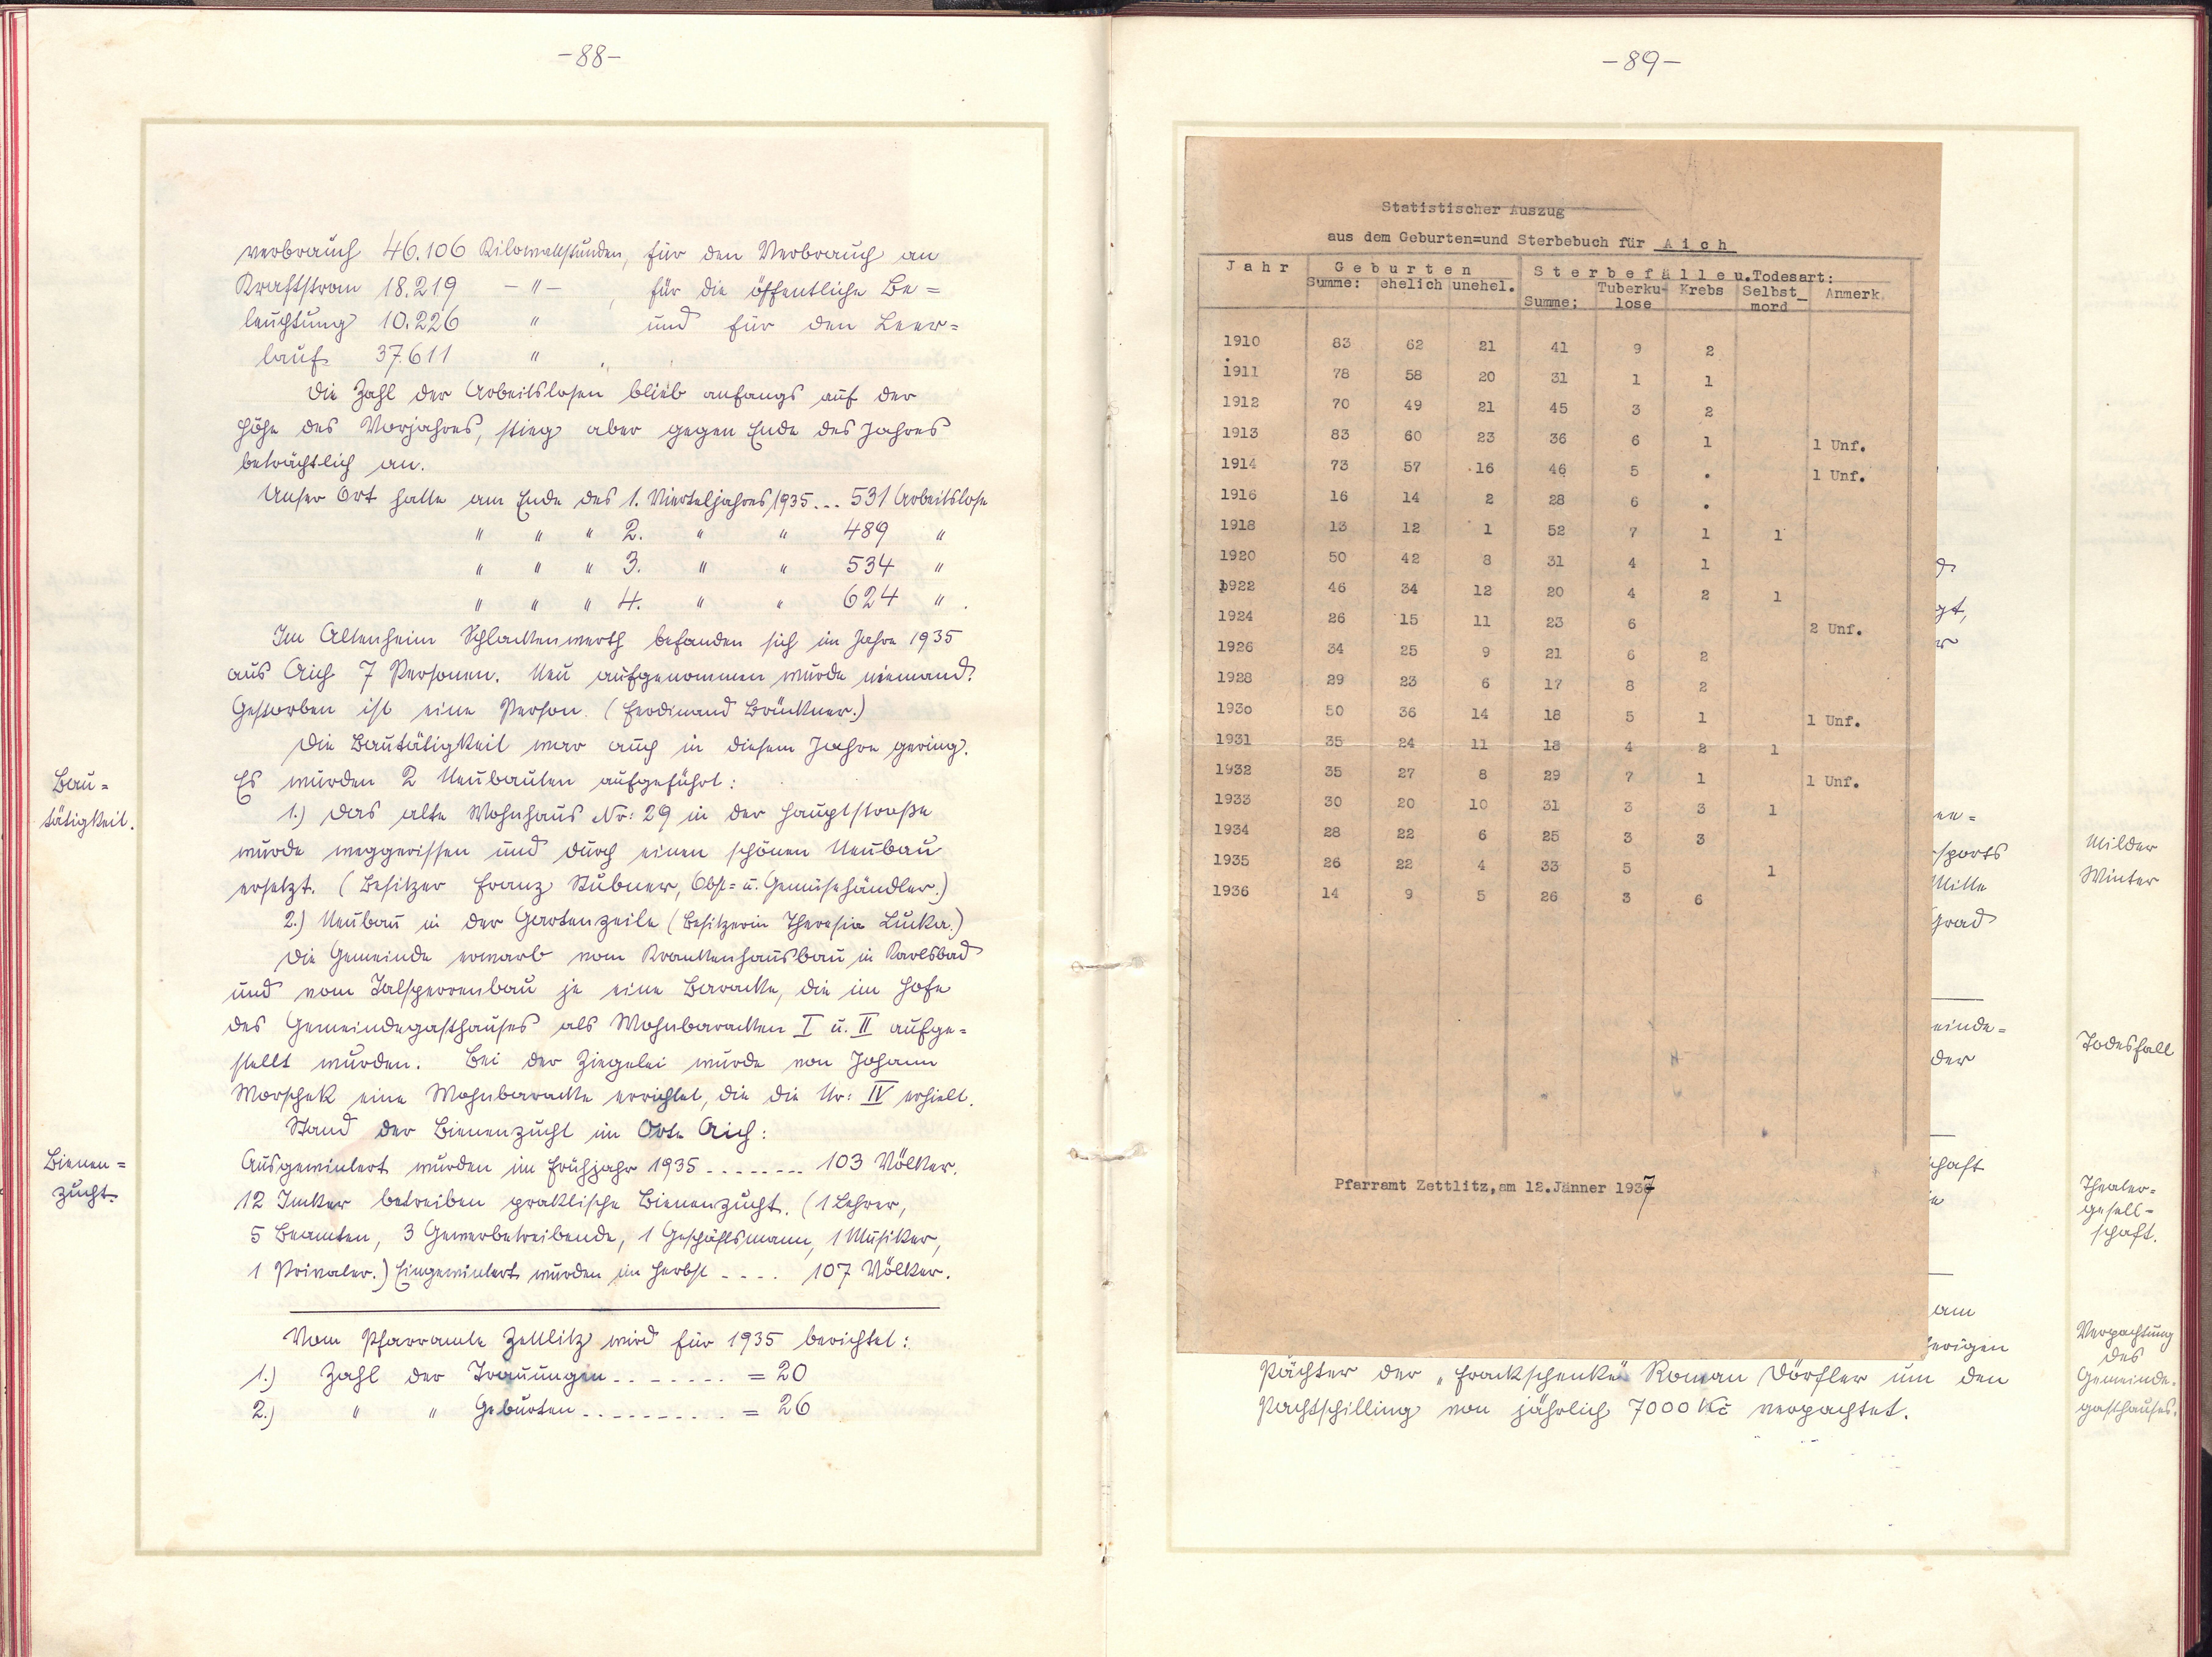 -88-
verbrauch 46.106 Kilowattstunden, für den Verbrauch an
Kraftstrom 18.219 -"- , für die öffentliche Be=
leuchtung 10.226 " und für den Leer=
lauf 37.611 " .
Die Zahl der Arbeitslosen blieb anfangs auf der
Höhe des Vorjahres, stieg aber gegen Ende des Jahres
beträchtlich an.
Unser Ort hatte am Ende des 1. Vierteljahres 1935... 531 Arbeitslose
" " " 2. " " 489 "
" " " 3. " " 534 "
" " " 4. " " 624 " .
Im Altenheim Schlackenwerth befanden sich im Jahre 1935
aus Aich 7 Personen. Neu aufgenommen wurde niemand.
Gestorben ist eine Person. (Ferdinand Brückner.)
Die Bautätigkeit war auch in diesem Jahre gering.
Es wurden 2 Neubauten aufgeführt:
1.) Das alte Wohnhaus Nr: 29 in der Hauptstraße
wurde weggerissen und durch einen schönen Neubau
ersetzt. (Besitzer Franz Stübner, Obst= u. Gemüsehändler.)
2.) Neubau in der Gartenzeile (Besitzerin Theresia Lucka.)
Die Gemeinde erwarb vom Krankenhausbau in Karlsbad
und vom Talsperrenbau je eine Baracke, die im Hofe
des Gemeindegasthauses als Wohnbaracken I u. II aufge=
stellt wurden. Bei der Ziegelei wurde von Johann
Worschek eine Wohnbaracke errichtet, die die Nr: IV erhielt.
Stand der Bienenzucht im Orte Aich:
Ausgewintert wurden im Frühjahr 1935 ........ 103 Völker.
12 Imker betreiben praktische Bienenzucht. (1 Lehrer,
5 Beamten, 3 Gewerbetreibende, 1 Geschäftsmann, 1 Musiker,
1 Privater.) Eingewintert wurden im Herbst .... 107 Völker.
Vom Pfarramte Zettlitz wird für 1935 berichtet:
1.) Zahl der Trauungen ....... = 20
2.) " " Geburten ......... = 26
Bau=
tätigkeit.
Bienen=
zucht.
-89-
Statistischer Auszug
aus dem Geburten=und Sterbebuch für Aich
Jahr Geburten Sterbefälle u.Todesart:
Summe: ehelich unehel. Summe: Tuberku- Krebs Selbst_ Anmerk.
lose mord
1910 83 62 21 41 9 2
1911 78 58 20 31 1 1
1912 70 49 21 45 3 2
1913 83 60 23 36 6 1 1 Unf.
1914 73 57 16 46 5 . 1 Unf.
1916 16 14 2 28 6 .
1918 13 12 1 52 7 1 1
1920 50 42 8 31 4 1
1922 46 34 12 20 4 2 1
1924 26 15 11 23 6 2 Unf.
1926 34 25 9 21 6 2
1928 29 23 6 17 8 2
1930 50 36 14 18 5 1 1 Unf.
1931 35 24 11 18 4 2 1
1932 35 27 8 29 7 1 1 Unf.
1933 30 20 10 31 3 3 1
1934 28 22 6 25 3 3
1935 26 22 4 33 5 1
1936 14 9 5 26 3 6
Pfarramt Zettlitz,am 12.Jänner 1937
gt,
er
en=
sports
Mitte
Grad
einde=
der
schaft
am
herigen
Pächter der „Frackschenke" Roman Dörfler um den
Pachtschilling von jährlich 7000 Kč verpachtet.
Milder
Winter
Todesfall
Theater=
gesell=
schaft.
Verpachtung
des
Gemeinde=
gasthauses.